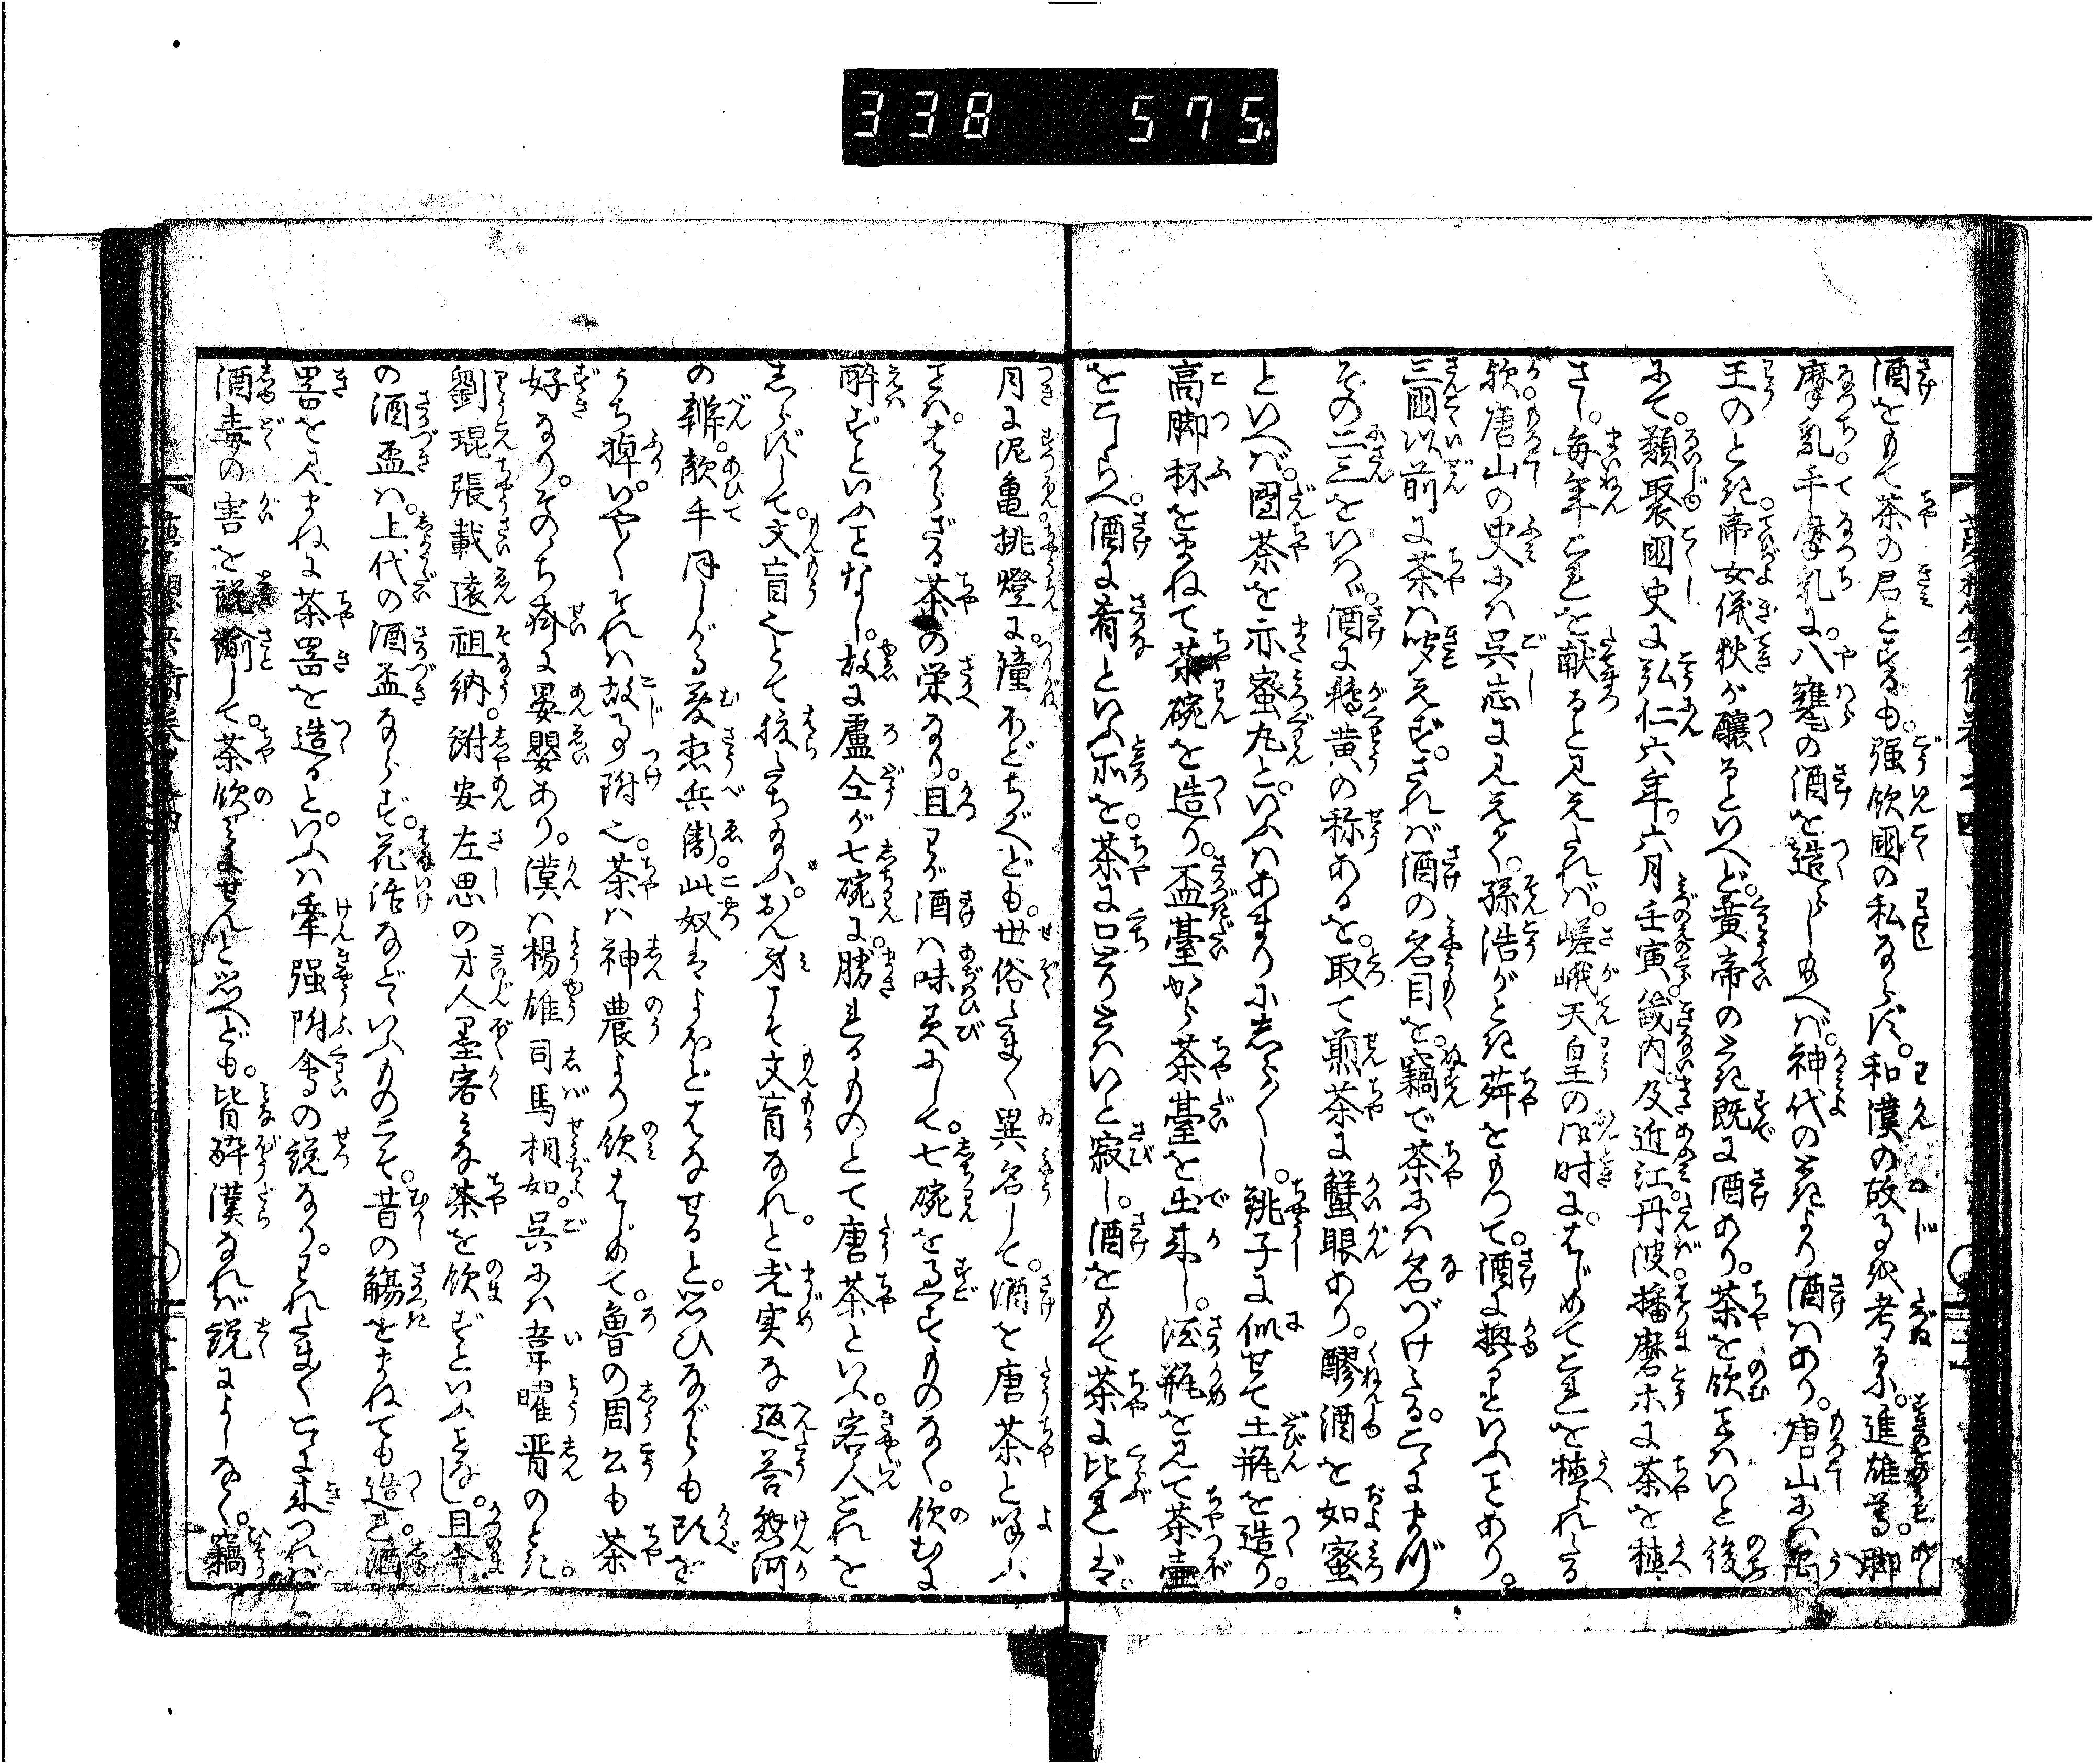 338 575.
酒をもて茶の君とするも。強飲國の私ならず。和漢の故事を考るに。進雄尊。脚
摩乳手摩乳に。八甕の酒を造らしめ給へば。神代のときより酒はあり。唐山には禹
王のとき。帝女儀狄が釀るといへど。黄帝のとき既に酒あり。茶を飲ことはいと後
にて。類聚國史に弘仁六年。六月壬寅。畿内及近江。丹波播磨等に茶を植
さし。毎年これを献ると見えたれば。嵯峨天皇の御時に。はじめてこれを植られたる
歟。唐山の史には呉志に見えて。孫浩がとき荈をもつて。酒に換るといふことあり。
三國以前に茶は聞えず。されば酒の名目を。竊で茶には名づけたる。こゝにまづ
その二三をいはゞ。酒に鵝黄の称あるを。取て煎茶に蟹眼あり。醪酒を如蜜
といへば。團茶を亦蜜丸と。いふはあまりにしら〴〵し。銚子に似せて土瓶を造り。
高脚杯をまねて茶碗を造り。盃臺から茶臺を出来し。酒瓶を見て茶壷
をこしらへ。酒に肴といふ所を。茶に口とりとはいと寂し。酒をもて茶に比れば。
月に泥亀挑燈に。鐘ほどちがへども。世俗たま〳〵異名して。酒を唐茶と喚ふ
ことは。はからざる茶の栄なり。且わが酒は味美にして。七碗を過すものなく。飲むに
酔ずといふことなし。故に盧仝が七碗に。勝れるものとて唐茶といふ。客人これを
しらずして。文盲也とて拔たち給ふ。おん身こそ文盲なれと老実な返答懸河
の辯。敵手同しがる夢想兵衛。此奴はよほどはなせると。思ひながらも頭を
うち掉。いや〳〵それは故事附也。茶は神農より飲はじめて。魯の周公も茶
好なり。そのち齊に晏嬰あり。漢は楊雄司馬相如。呉には韋曜晋のとき。
劉琨張載遠祖納。謝安左思の才人墨客みな茶を飲ずといふことなし。且今
の酒盃は。上代の酒盃ならず。花活などゝいふものにて。昔の觴をまねても造る。酒
噐を見まねに茶噐を造ると。いふは牽強附會の説なり。われたま〳〵こゝに来つれば
酒毒の害を説諭して。茶飲みにせんと思へども。皆酔漢なれば説によしなく。竊